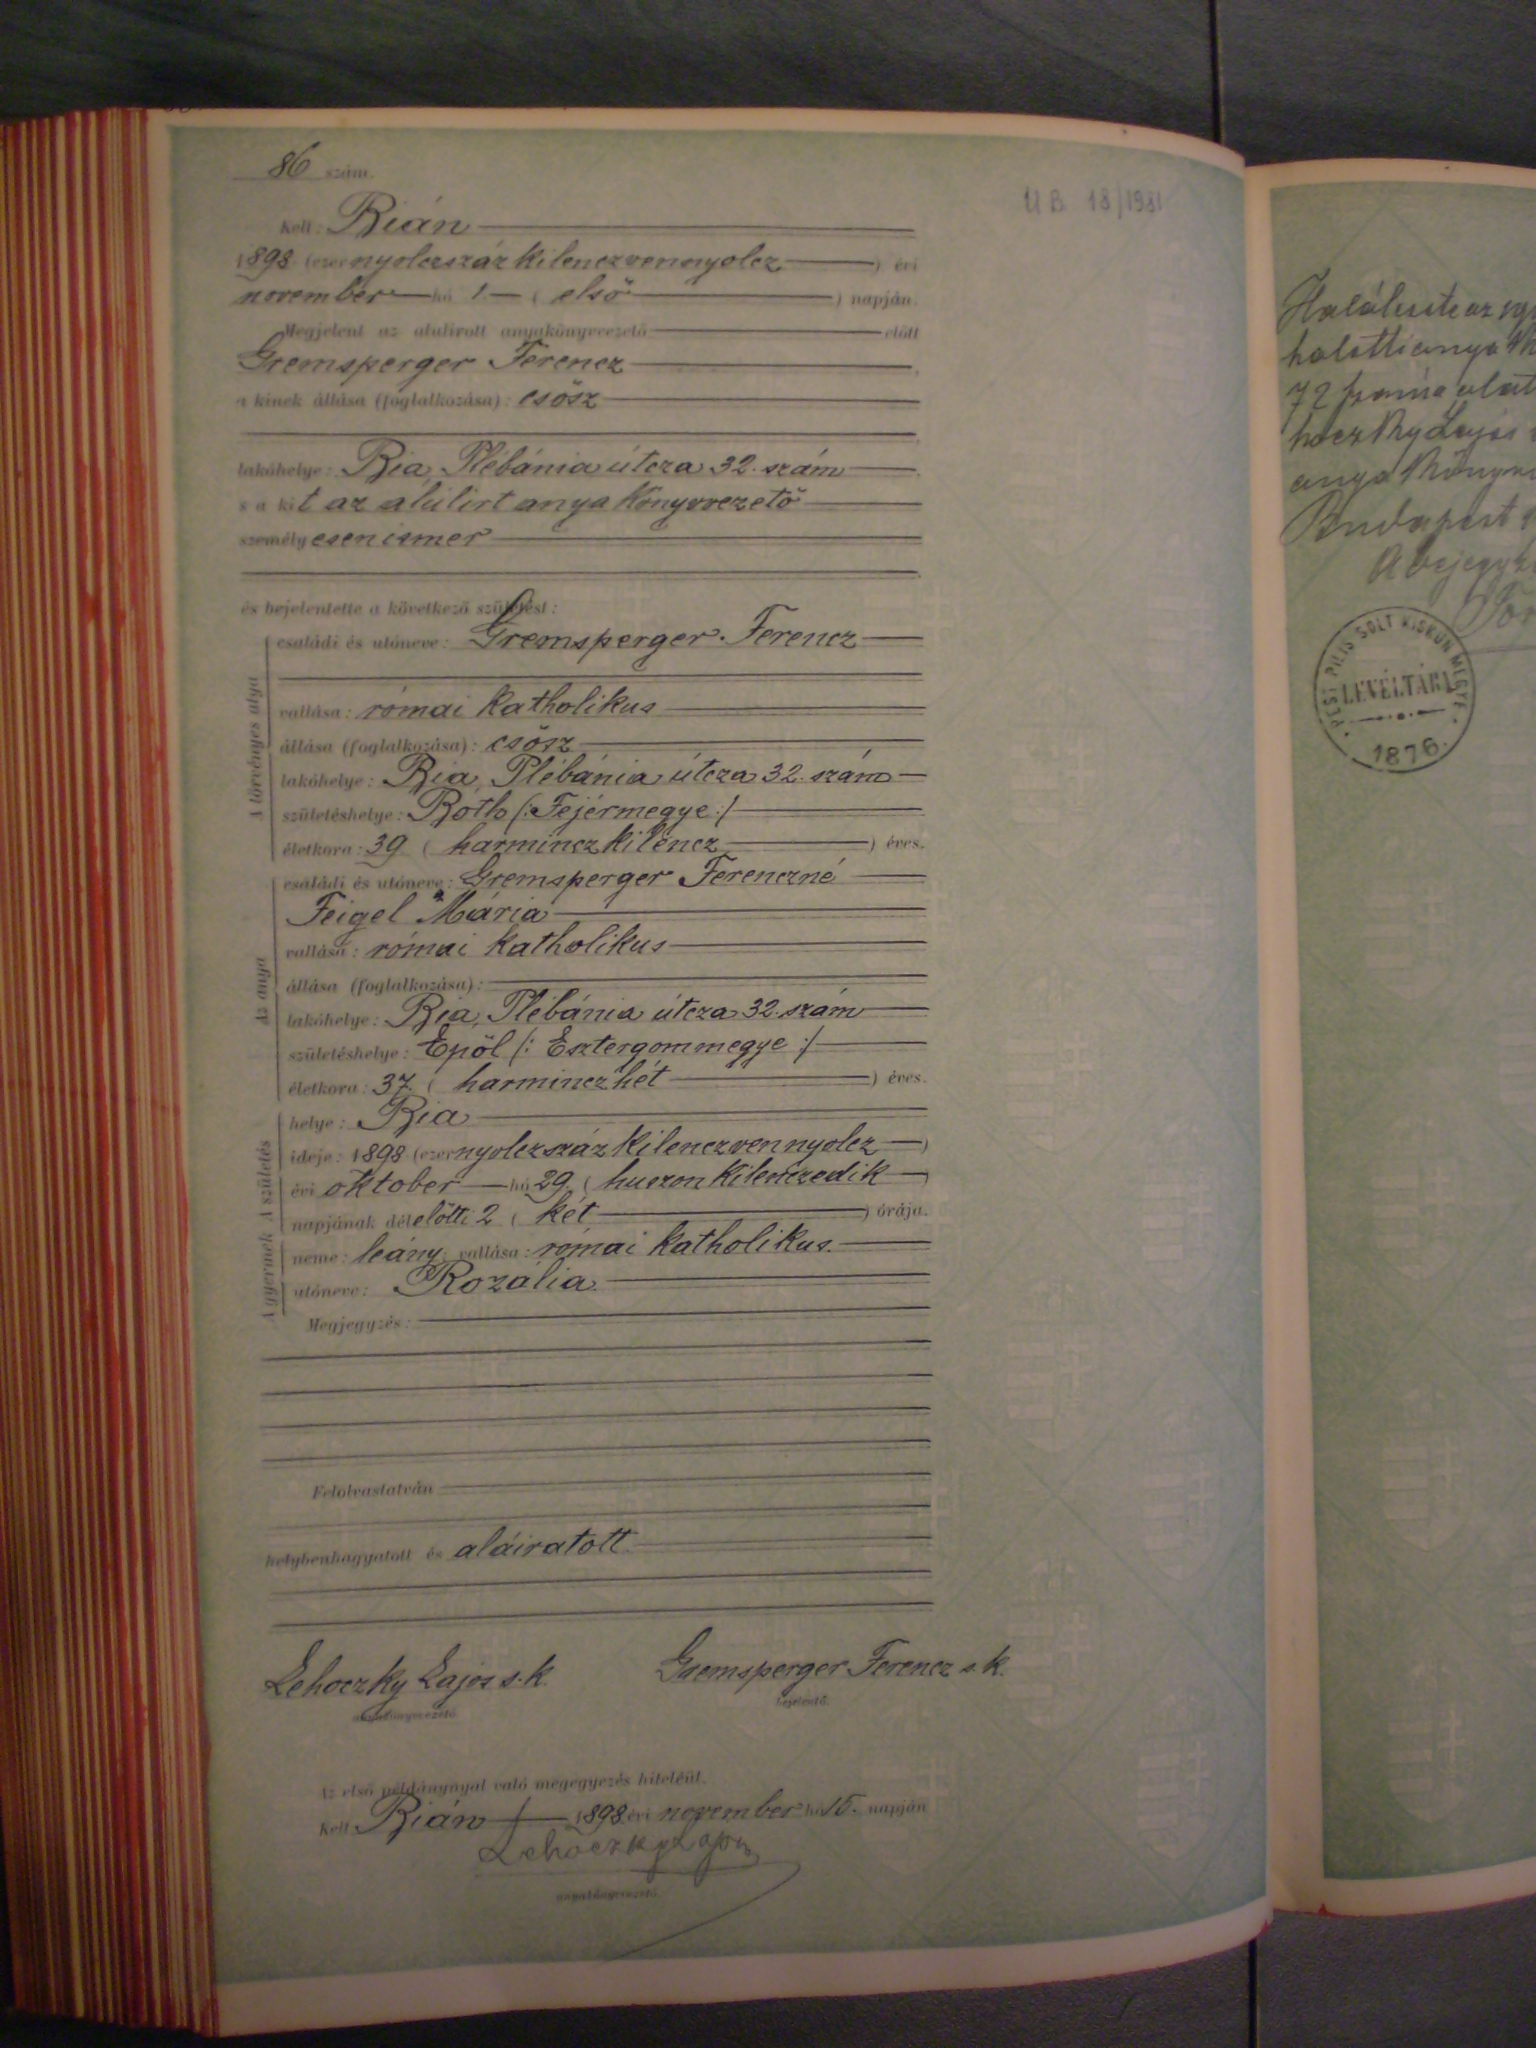 86 szám.
U B 18/1981
Kelt: Bián
1898 (ezernyolczszáz kilenczvennyolcz) évi
november hó 1 (első) napján.
Megjelent az alulirott anyakönyvvezető előtt
Gremsperger Ferencz,
a kinek állása (foglalkozása): csősz
lakóhelye: Bia, Plébánia útcza 32. szám
s a kit az alúlirt anyakönyvvezető
személyesen ismer
és bejelentette a következő születést:
A törvényes atya
családi és utóneve: Gremsperger Ferencz
vallása: római katholikus
állása (foglalkozása): csősz
lakóhelye: Bia, Plébánia útcza 32. szám
születéshelye: Both /: Fejérmegye :/
életkora: 39 (harmincz kilencz) éves.
Az anya
családi és utóneve: Gremsperger Ferenczné
Feigel Mária
vallása: római katholikus
állása (foglalkozása):
lakóhelye: Bia, Plébánia útcza 32. szám
születéshelye: Epöl /: Esztergommegye :/
életkora: 37. (harminczhét) éves.
A születés
helye: Bia
ideje: 1898 (ezernyolczszáz kilenczvennyolcz)
évi október hó 29. (huszonkilenczedik)
napjának délelőtti 2 (két) órája.
A gyermek
neme: leány; vallása: római katholikus.
utóneve: Rozália.
Megjegyzés:
Felolvastatván
helybenhagyatott és aláiratott.
Lehoczky Lajos s.k. Gremsperger Ferencz s.k.
anyakönyvvezető bejelentő.
Az első példánynyal való megegyezés hiteléül.
Kelt Bián 1898 évi november hó 15. napján
Lehoczky Lajos
anyakönyvvezető.
halotti anya
72 szám alatt
Lajos
Budapest
PEST PILIS SOLT KISKUN MEGYE
LEVÉLTÁRA
1876.